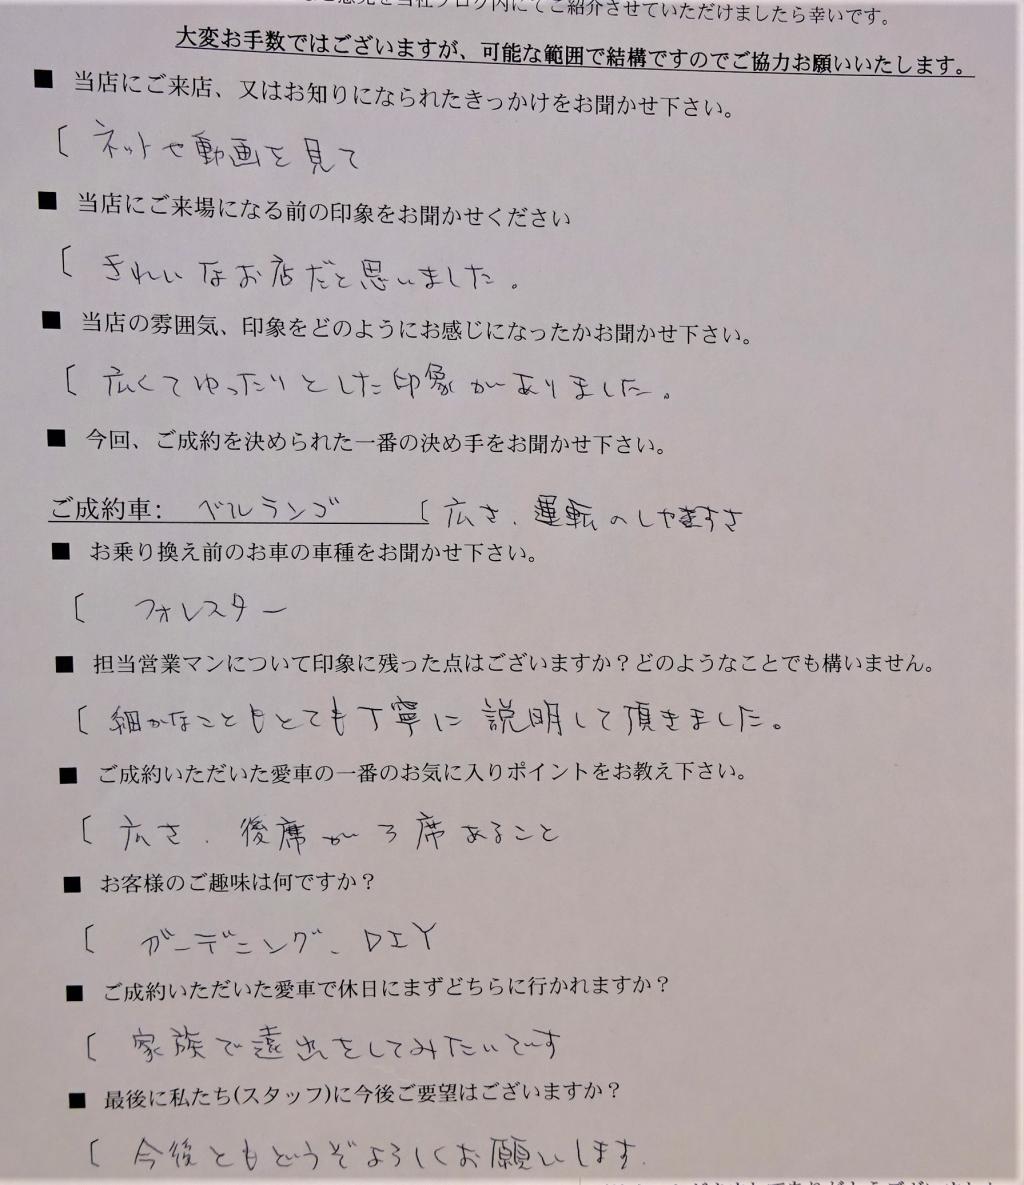 ご意見を当社ブログ内にてご紹介させていただけましたら幸いです。
大変お手数ではございますが、可能な範囲で結構ですのでご協力お願いいたします。
■ 当店にご来店、又はお知りになられたきっかけをお聞かせ下さい。
[ ネットや動画を見て
■ 当店にご来場になる前の印象をお聞かせください
[ きれいなお店だと思いました。
■ 当店の雰囲気、印象をどのようにお感じになったかお聞かせ下さい。
[ 広くてゆったりとした印象がありました。
■ 今回、ご成約を決められた一番の決め手をお聞かせ下さい。
ご成約車: ベルランゴ [ 広さ、運転のしやすさ
■ お乗り換え前のお車の車種をお聞かせ下さい。
[ フォレスター
■ 担当営業マンについて印象に残った点はございますか?どのようなことでも構いません。
[ 細かなこともとても丁寧に説明して頂きました。
■ ご成約いただいた愛車の一番のお気に入りポイントをお教え下さい。
[ 広さ、後席が3席あること
■ お客様のご趣味は何ですか?
[ ガーデニング、DIY
■ ご成約いただいた愛車で休日にまずどちらに行かれますか?
[ 家族で遠出をしてみたいです
■ 最後に私たち(スタッフ)に今後ご要望はございますか?
[ 今後ともどうぞよろしくお願いします.